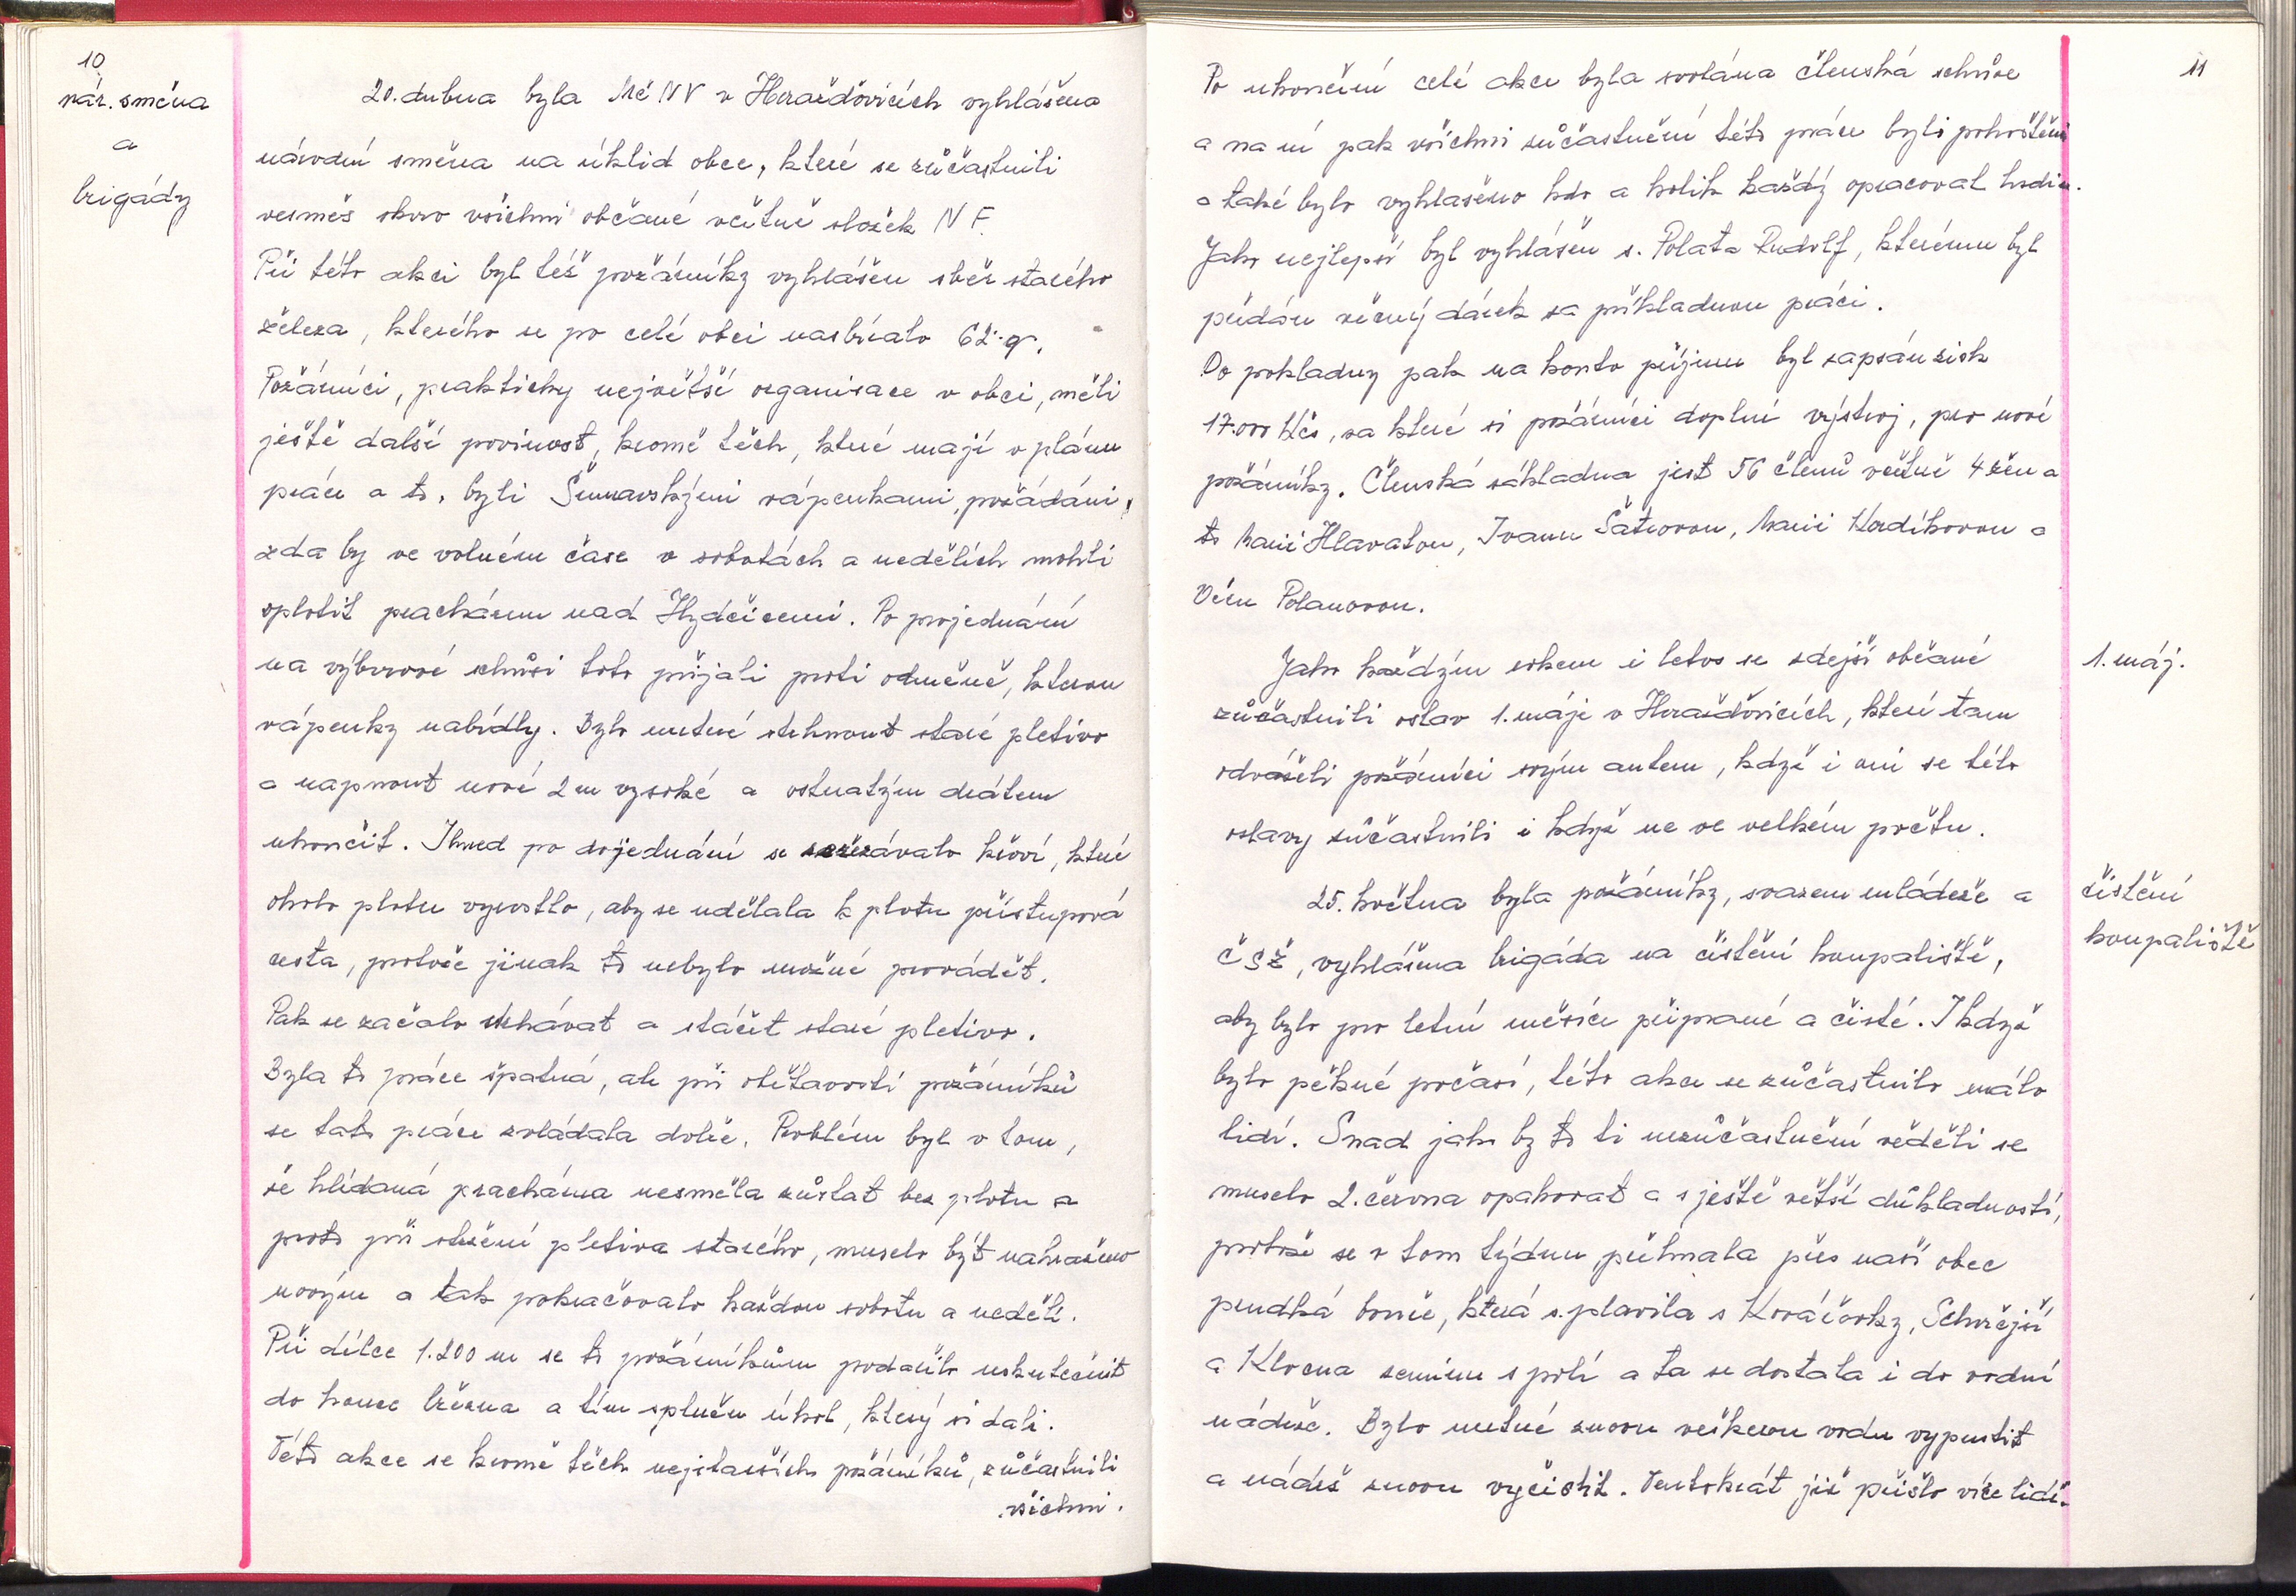 10
nár. směna
a
brigády
20. dubna byla MěNV v Horažďovicích vyhlášena
národní směna na úklid obce, které se zůčastnili
vesměs skoro všichni občané včetně složek NF.
Při této akci byl též požárníky vyhlášen sběr starého
železa, kterého se po celé obci nasbíralo 62 q.
Požárníci, prakticky největší organisace v obci, měli
ještě další povinost, kromě těch, které mají v plánu
práce a to, byli Šumavskými vápenkami, požádáni,
zda by ve volném čase v sobotách a nedělích mohli
oplotit prachárnu nad Hydčicemi. Po projednání
na výborové schůzi toto přijali proti odměně, kterou
vápenky nabídly. Bylo nutné strhnout staré pletivo
a napnout nové 2 m vysoké a ostnatým drátem
ukončit. Ihned po dojednání se seřezávalo křoví, které
okolo plotu vyrostlo, aby se udělala k plotu přístupová
cesta, protože jinak to nebylo možné provádět.
Pak se začalo strhávat a stáčet staré pletivo.
Byla to práce špatná, ale při obětavosti požárníků
se tato práce zvládala dobře. Problém byl v tom,
že hlídaná prachárna nesměla zůstat bez plotu a
proto při stržení pletiva starého, muselo být nahraženo
novým a tak pokračovalo každou sobotu a neděli.
Při délce 1.200 m se to požárníkům podařilo uskutečnit
do konce března a tím splněn úkol, který si dali.
Této akce se kromě těch nejstarších požárníků, zůčastnili
všichni.
11
Po ukončení celé akce byla svolána členská schůze
a na ní pak všichni zůčastnění této práce byli pohoštěni
a také bylo vyhlášeno kdo a kolik každý opracoval hodin.
Jako nejlepší byl vyhlášen s. Polata Rudolf, kterému byl
předán věcný dárek za příkladnou práci.
Do pokladny pak na konto příjmu byl zapsán zisk
17.000 Kčs, za které si požárníci doplní výstroj, pro nové
požárníky. Členská základna jest 56 členů včetně 4 žen a
to Marii Hlavatou, Ivanu Šátrovou, Marii Kordíkovou a
Věru Polanovou.
Jako každým rokem i letos se zdejší občané
zůčastnili oslav 1. máje v Horažďovicích, kteří tam
odváželi požárníci svým autem, když i oni se této
oslavy zůčastnili i když ne ve velkém počtu.
1. máj.
25. května byla požárníky, svazem mládeže a
ČSŽ, vyhlášena brigáda na čistění koupaliště,
aby bylo pro letní měsíce připravné a čisté. I když
bylo pěkné počasí, této akce se zůčastnilo málo
lidí. Snad jako by to ti nezůčastnění věděli se
muselo 2. června opakovat a s ještě větší důkladností,
protože se v tom týdnu přehnala přes naší obec
prudká bouře, která splavila s Kováčovky, Schožejší
a Klocna zeminu s polí a ta se dostala i do vodní
nádrže. Bylo nutné znovu veškerou vodu vypustit
a nádrž znovu vyčistit. Tentokrát již přišlo více lidí.
čistění
koupaliště